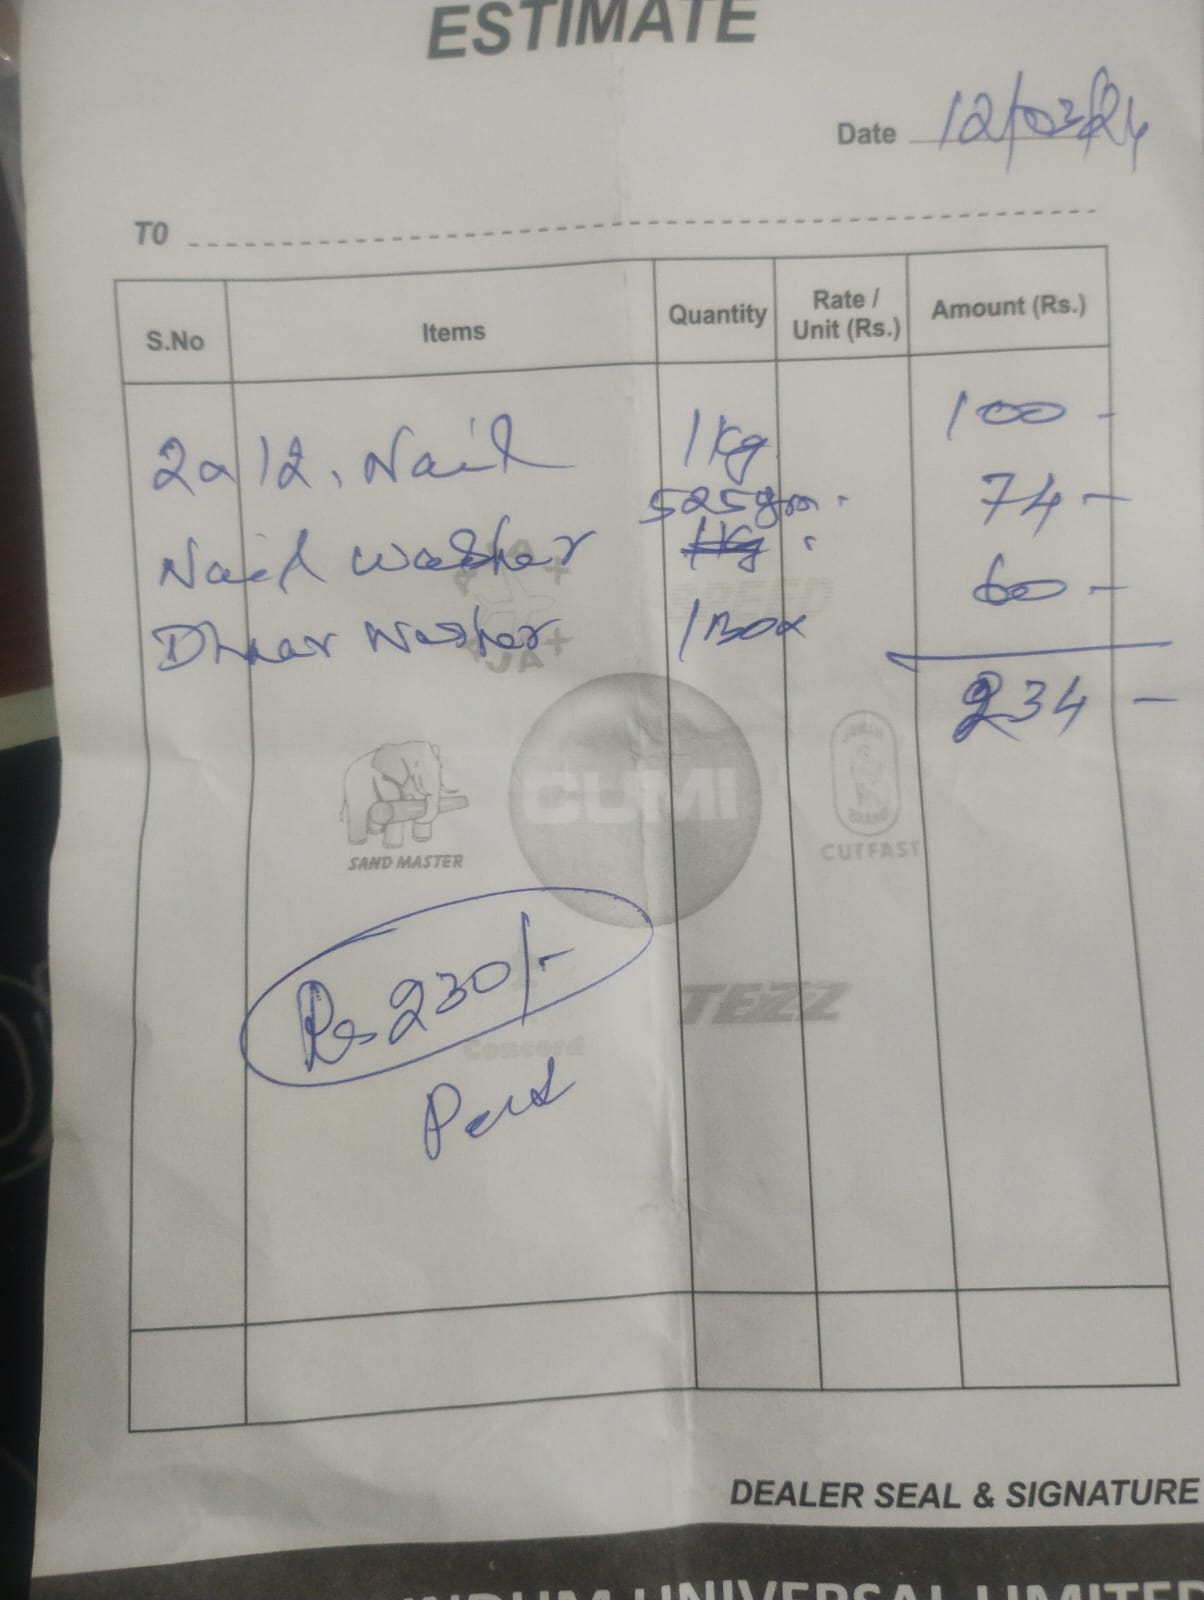 ESTIMATE
Date 12/03/24
TO
S.No Items Quantity Rate / Unit (Rs.) Amount (Rs.)
Nail 1 Kg 100 -
Nail Washer 525 gm 1 Kg 74 -
Washer 1 Box 60 -
234 -
SPEED
CUMI
SAND MASTER
BRAND
CUTFAST
Rs 230/-
TEZZ
Concord
DEALER SEAL & SIGNATURE
UNIVERSAL LIMITED